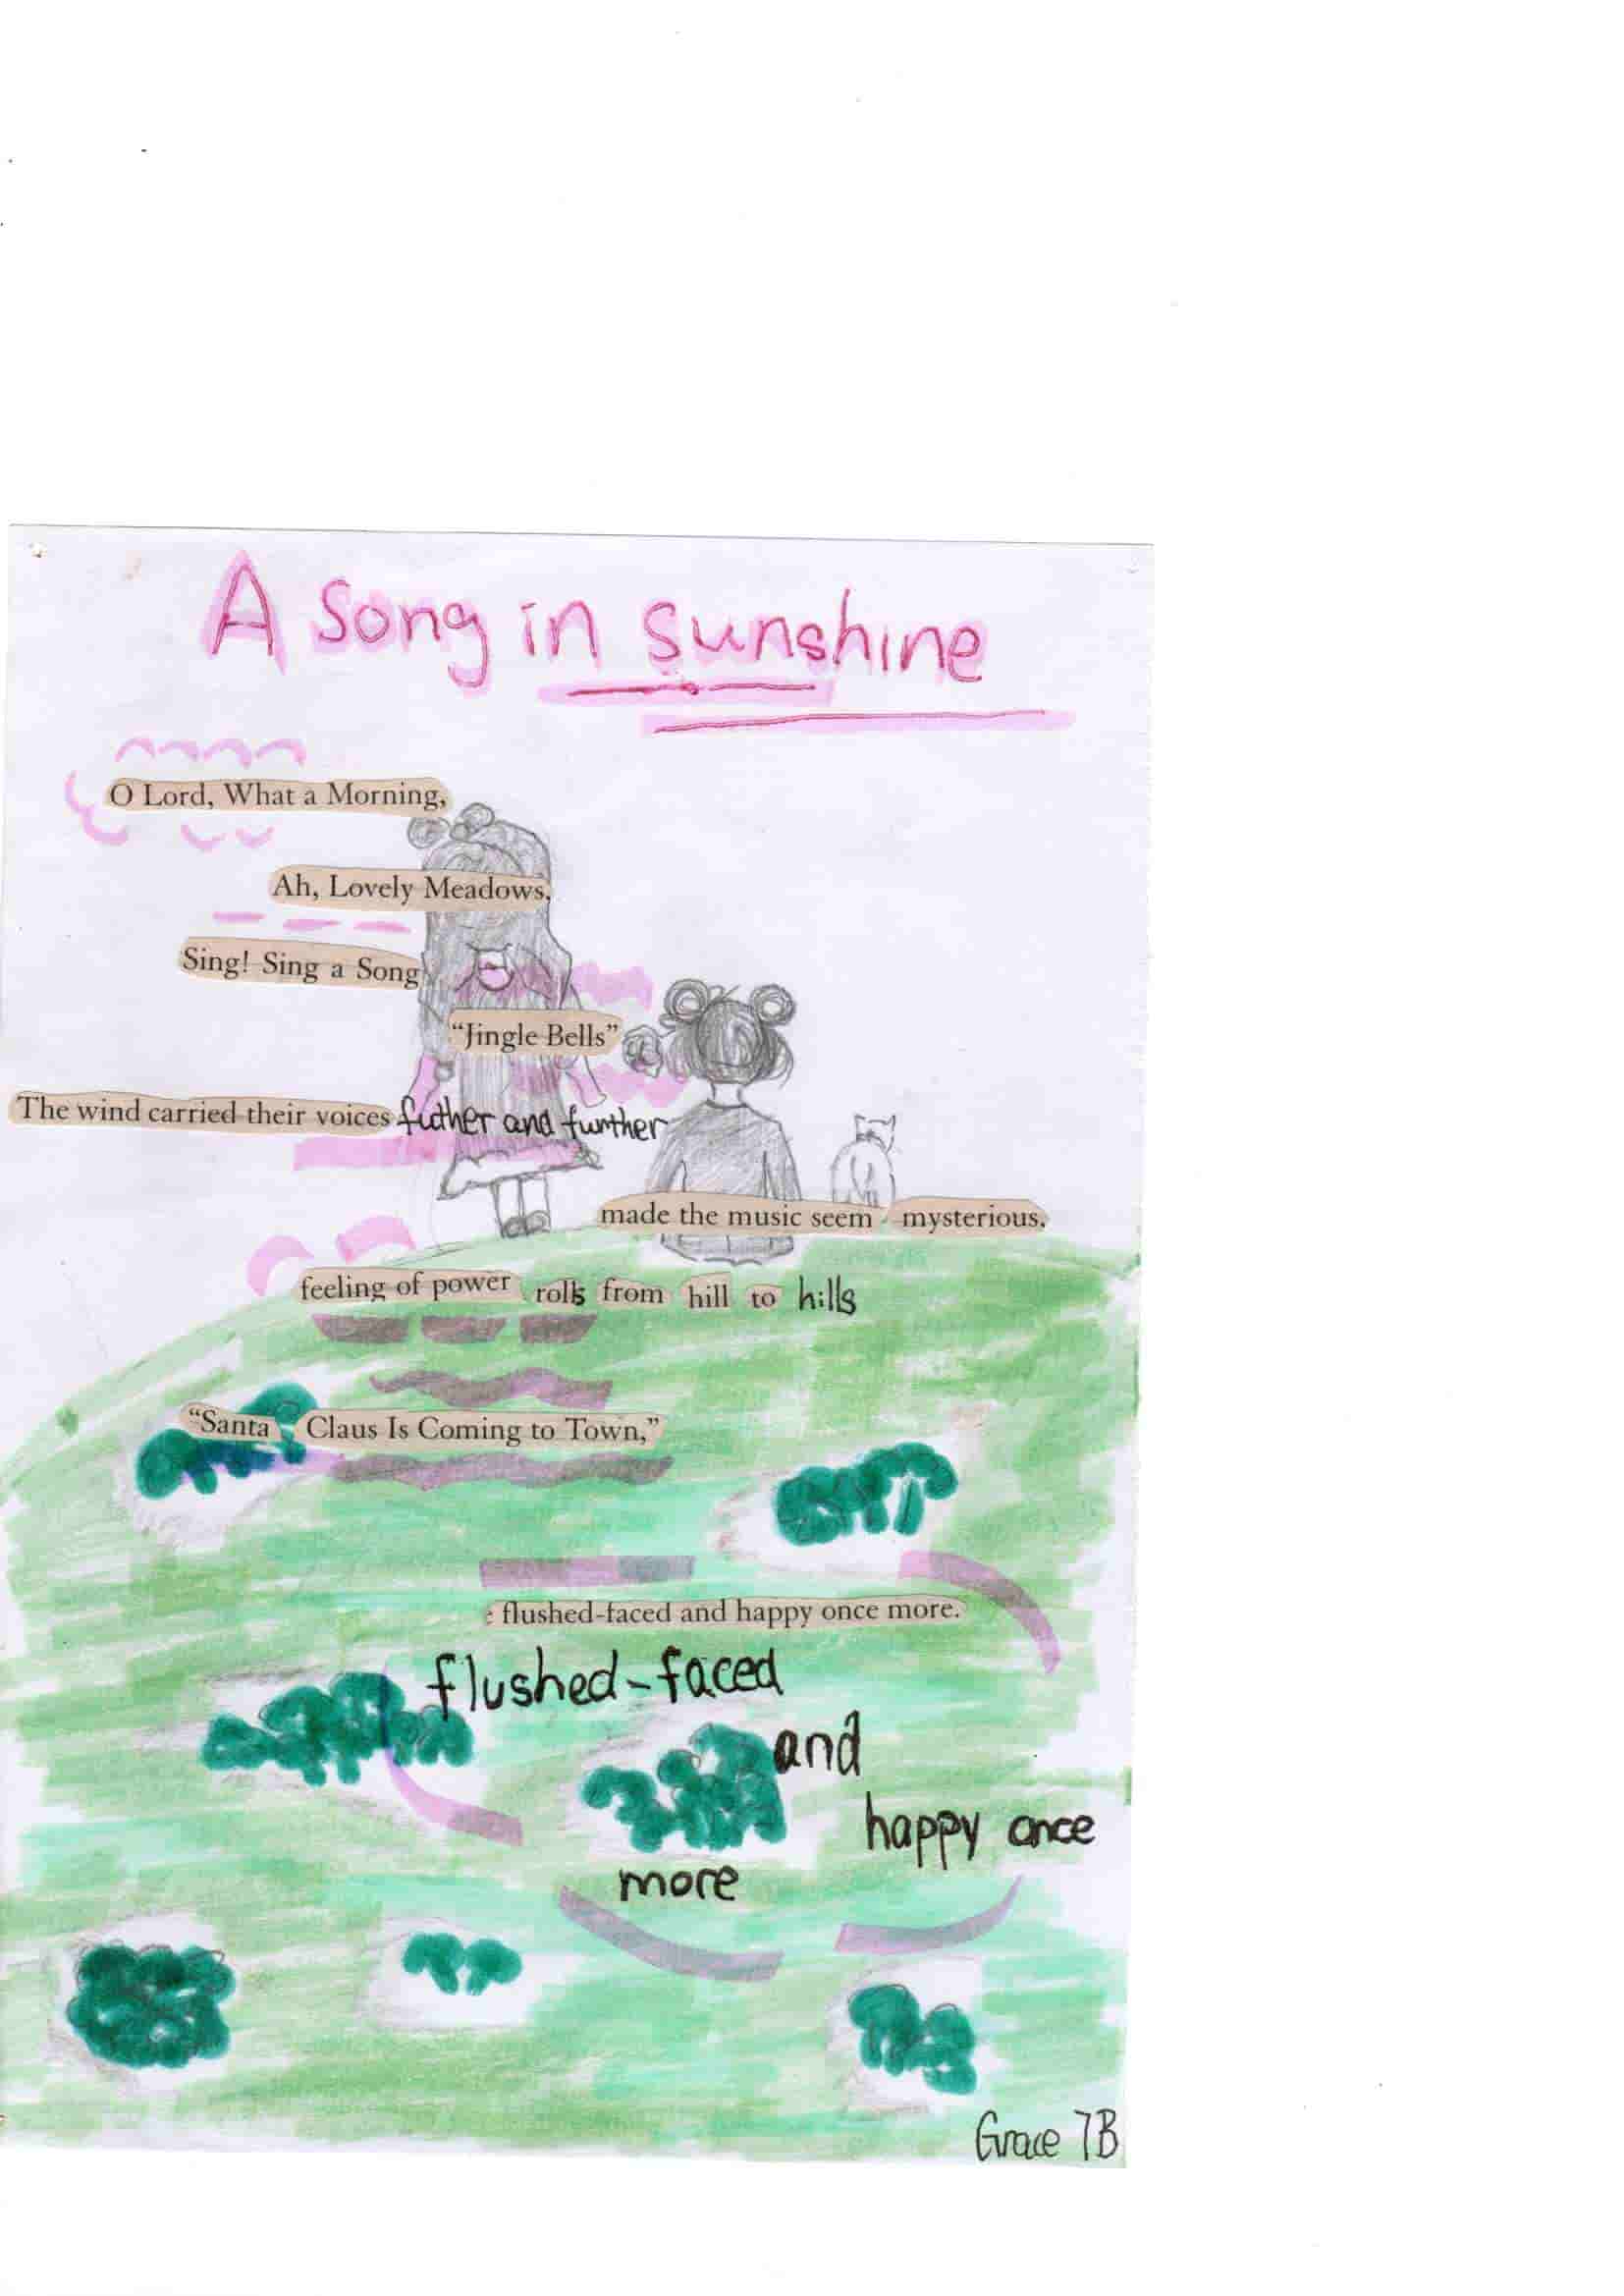 A Song in Sunshine
O Lord, What a Morning,
Ah, Lovely Meadows,
Sing! Sing a Song
“Jingle Bells”
The wind carried their voices futher and further
made the music seem mysterious.
feeling of power rolls from hill to hills
“Santa Claus Is Coming to Town,”
flushed-faced and happy once more.
flushed-faced
and
happy once
more
Grace 7B